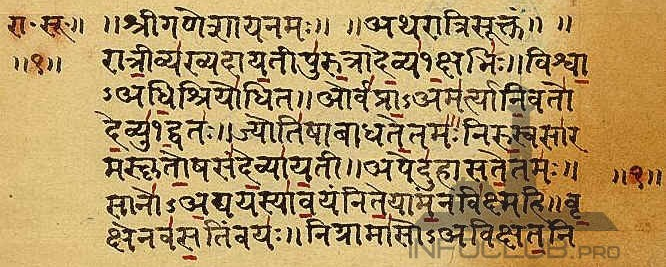 रा॰ सू॰ ॥ ॥श्रीगणेशायनमः॥ ॥अथरात्रिसूक्तं॥ ॥
॥१॥ रात्रीव्यख्यदायतीपुरुत्रादेव्य१क्षभिः॥विश्वा
ऽअधिश्रियोधित॥ओर्वप्राऽअमर्त्यानिवतो
देव्यु१द्वतः॥ज्योतिषाबाधतेतमः॥निरुस्वसार
मस्कृतोषसंदेव्यायती॥अपेदुहासतेतमः॥
सानोऽअद्ययस्यावयंनितेयामन्नविक्ष्महि॥वृ ॥१॥
क्षेनवसतिंवयः॥निग्रामासोऽअविक्षतनि
INFOCLUB.PRO